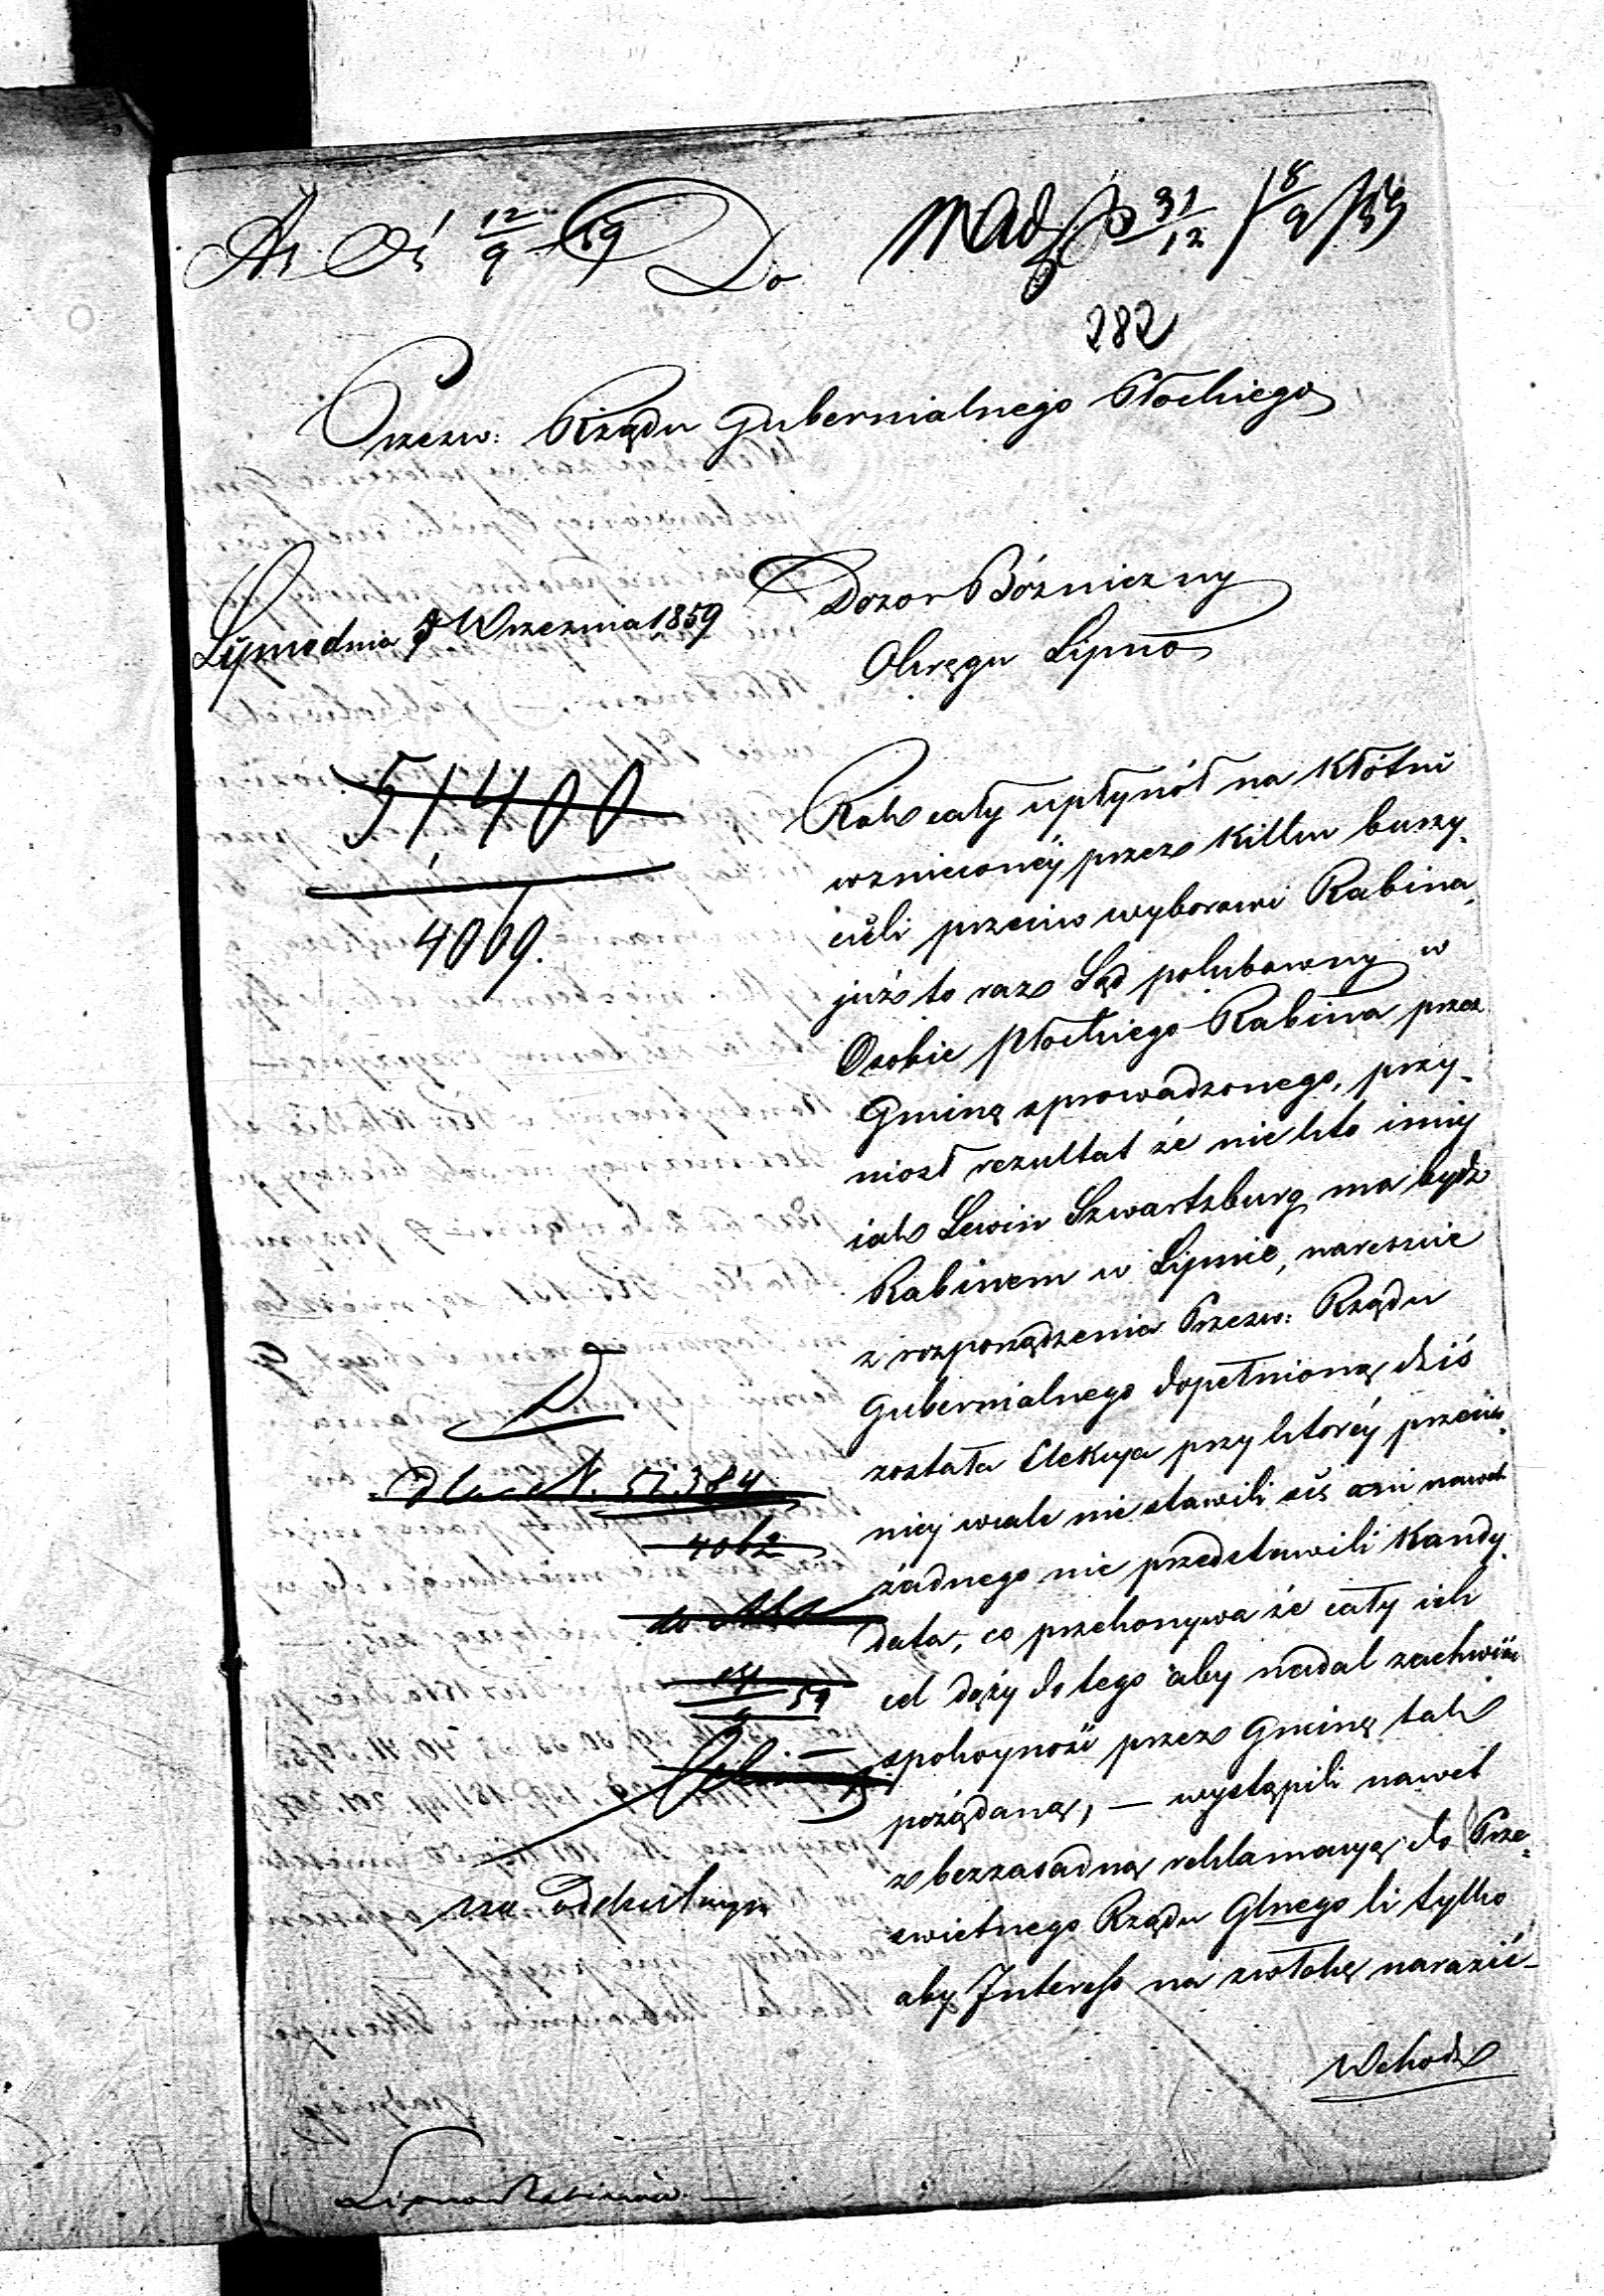 12/9 59 Do
31/12 18/9 59
282
Przezw: Rządu Gubernialnego Płockiego
Dozor Bózniczny
Okręgu Lipno
Lipno dnia 9 Wrzeznia 1859
51400
4069.
Rok cały upłynół na Kłótni
wznieconéj przez Kilku burzy-
cieli przeciw wyborowi Rabina,
już to raz Sąd polubowny w
Osobie Płockiego Rabina przez
Gminę sprowadzonego, przy-
niosł rezultat że nie kto inny
iak Lewin Szwartzburg ma bydź
Rabinem w Lipnie, nareszcie
z rozporządzenia Przezw: Rządu
Gubernialnego dopełnioną dziś
została Elekcya przy ktoréj przeciw-
nicy wcale nie stawili się ani nawet
żadnego nie przedstawili Kandy-
data, co przekonywa że cały ich
cel dąży do tego aby nadal zachwiać
spokoyność przez Gminę tak
pożądaną, — wystąpili nawet
z bezzasadną reklamacyą do Prze-
swietnego Rządu Glnego li tylko
aby Interess na zwłokę narazić —
Wchodz
dla N. 51.384
4062
59
na odskutnym
Lipno Rabinów —